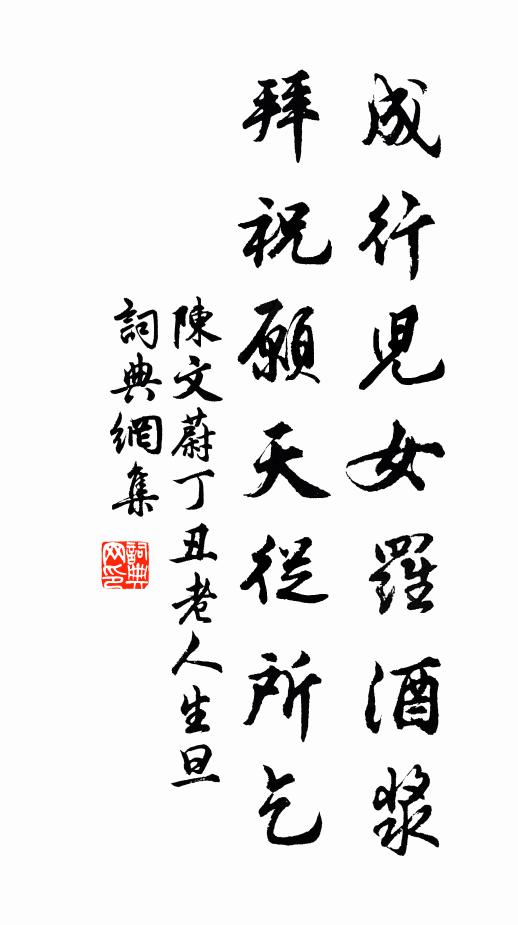 成行児女羅酒漿
拜祝願天從所乞
陳文蔚丁丑老人生旦
詞典網集
詞典網印